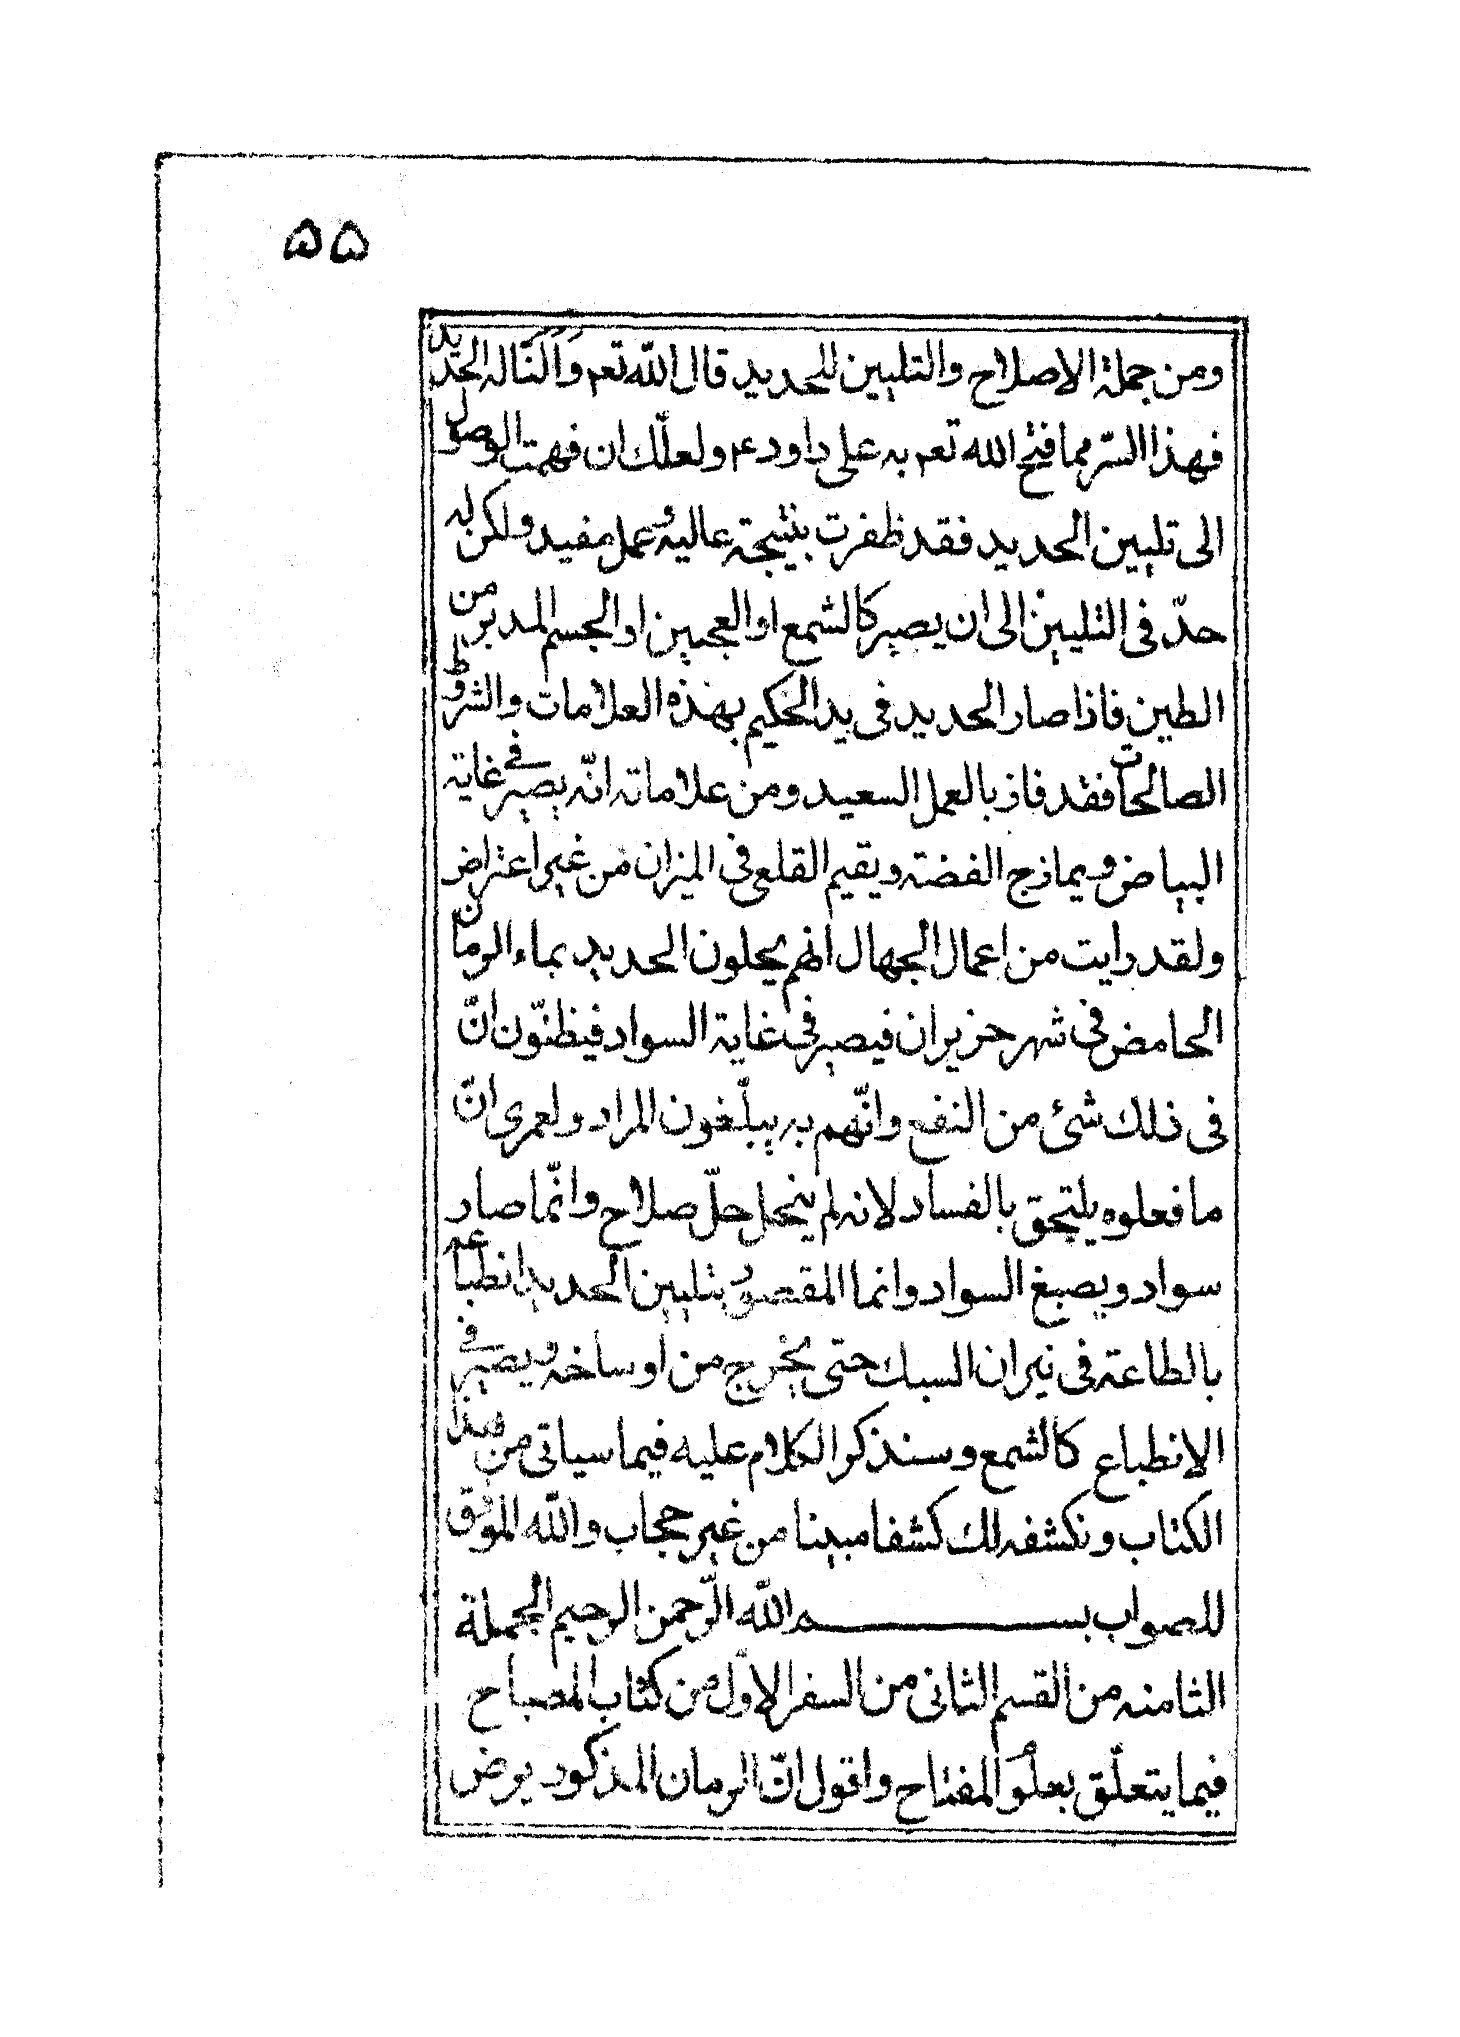 ۵۵
ومن جملة الاصلاح والتليين للحديد قال الله تعم وَاَلَنّاله الحديد
فهذا السّر مما فتح الله تعم به على داود ع ولعلّك ان فهمت الوصول
الى تليين الحديد فقد ظفرت بنتيجة عاليه وعمل مفيد ولكن له
حدّ فى التليين الى ان يصير كالشمع او العجين او الجسم المدبر من
الطين فاذا صار الحديد فى يد الحكيم بهذه العلامات والشروط
الصالحات فقد فاز بالعمل السعيد ومن علاماته انّه يصير فى غاية
البياض ويمازج الفضة ويقيم القلعى فى الميزان من غير اعتراض
ولقد رايت من اعمال الجهال انهم يحلون الحديد بماء الرمان
الحامض فى شهر حزيران فيصير فى غاية السواد فيظنّون انّ
فى ذلك شئ من النفع وانّهم به يبلّغون المراد ولعمرى انّ
ما فعلوه يلتحق بالفساد لانه لم ينحل حلّ صلاح وانّما صار
سواد ويصبغ السواد وانما المقصود بتليين الحديد انطباعه
بالطاعة فى نيران السبك حتى يخرج من اوساخه ويصير فى
الانطباع كالشمع وسنذكر الكلام عليه فيما سياتى من هذا
الكتاب ونكشفه لك كشفا مبينا من غير حجاب والله الموفق
للصواب بســـــم الله الرّحمن الرحيم الجملة
الثامنه من القسم الثانى من السفر الاوّل من كتاب المصباح
فيما يتعلّق بعلوم المفتاح واقول انّ الرمان المذكور يرض